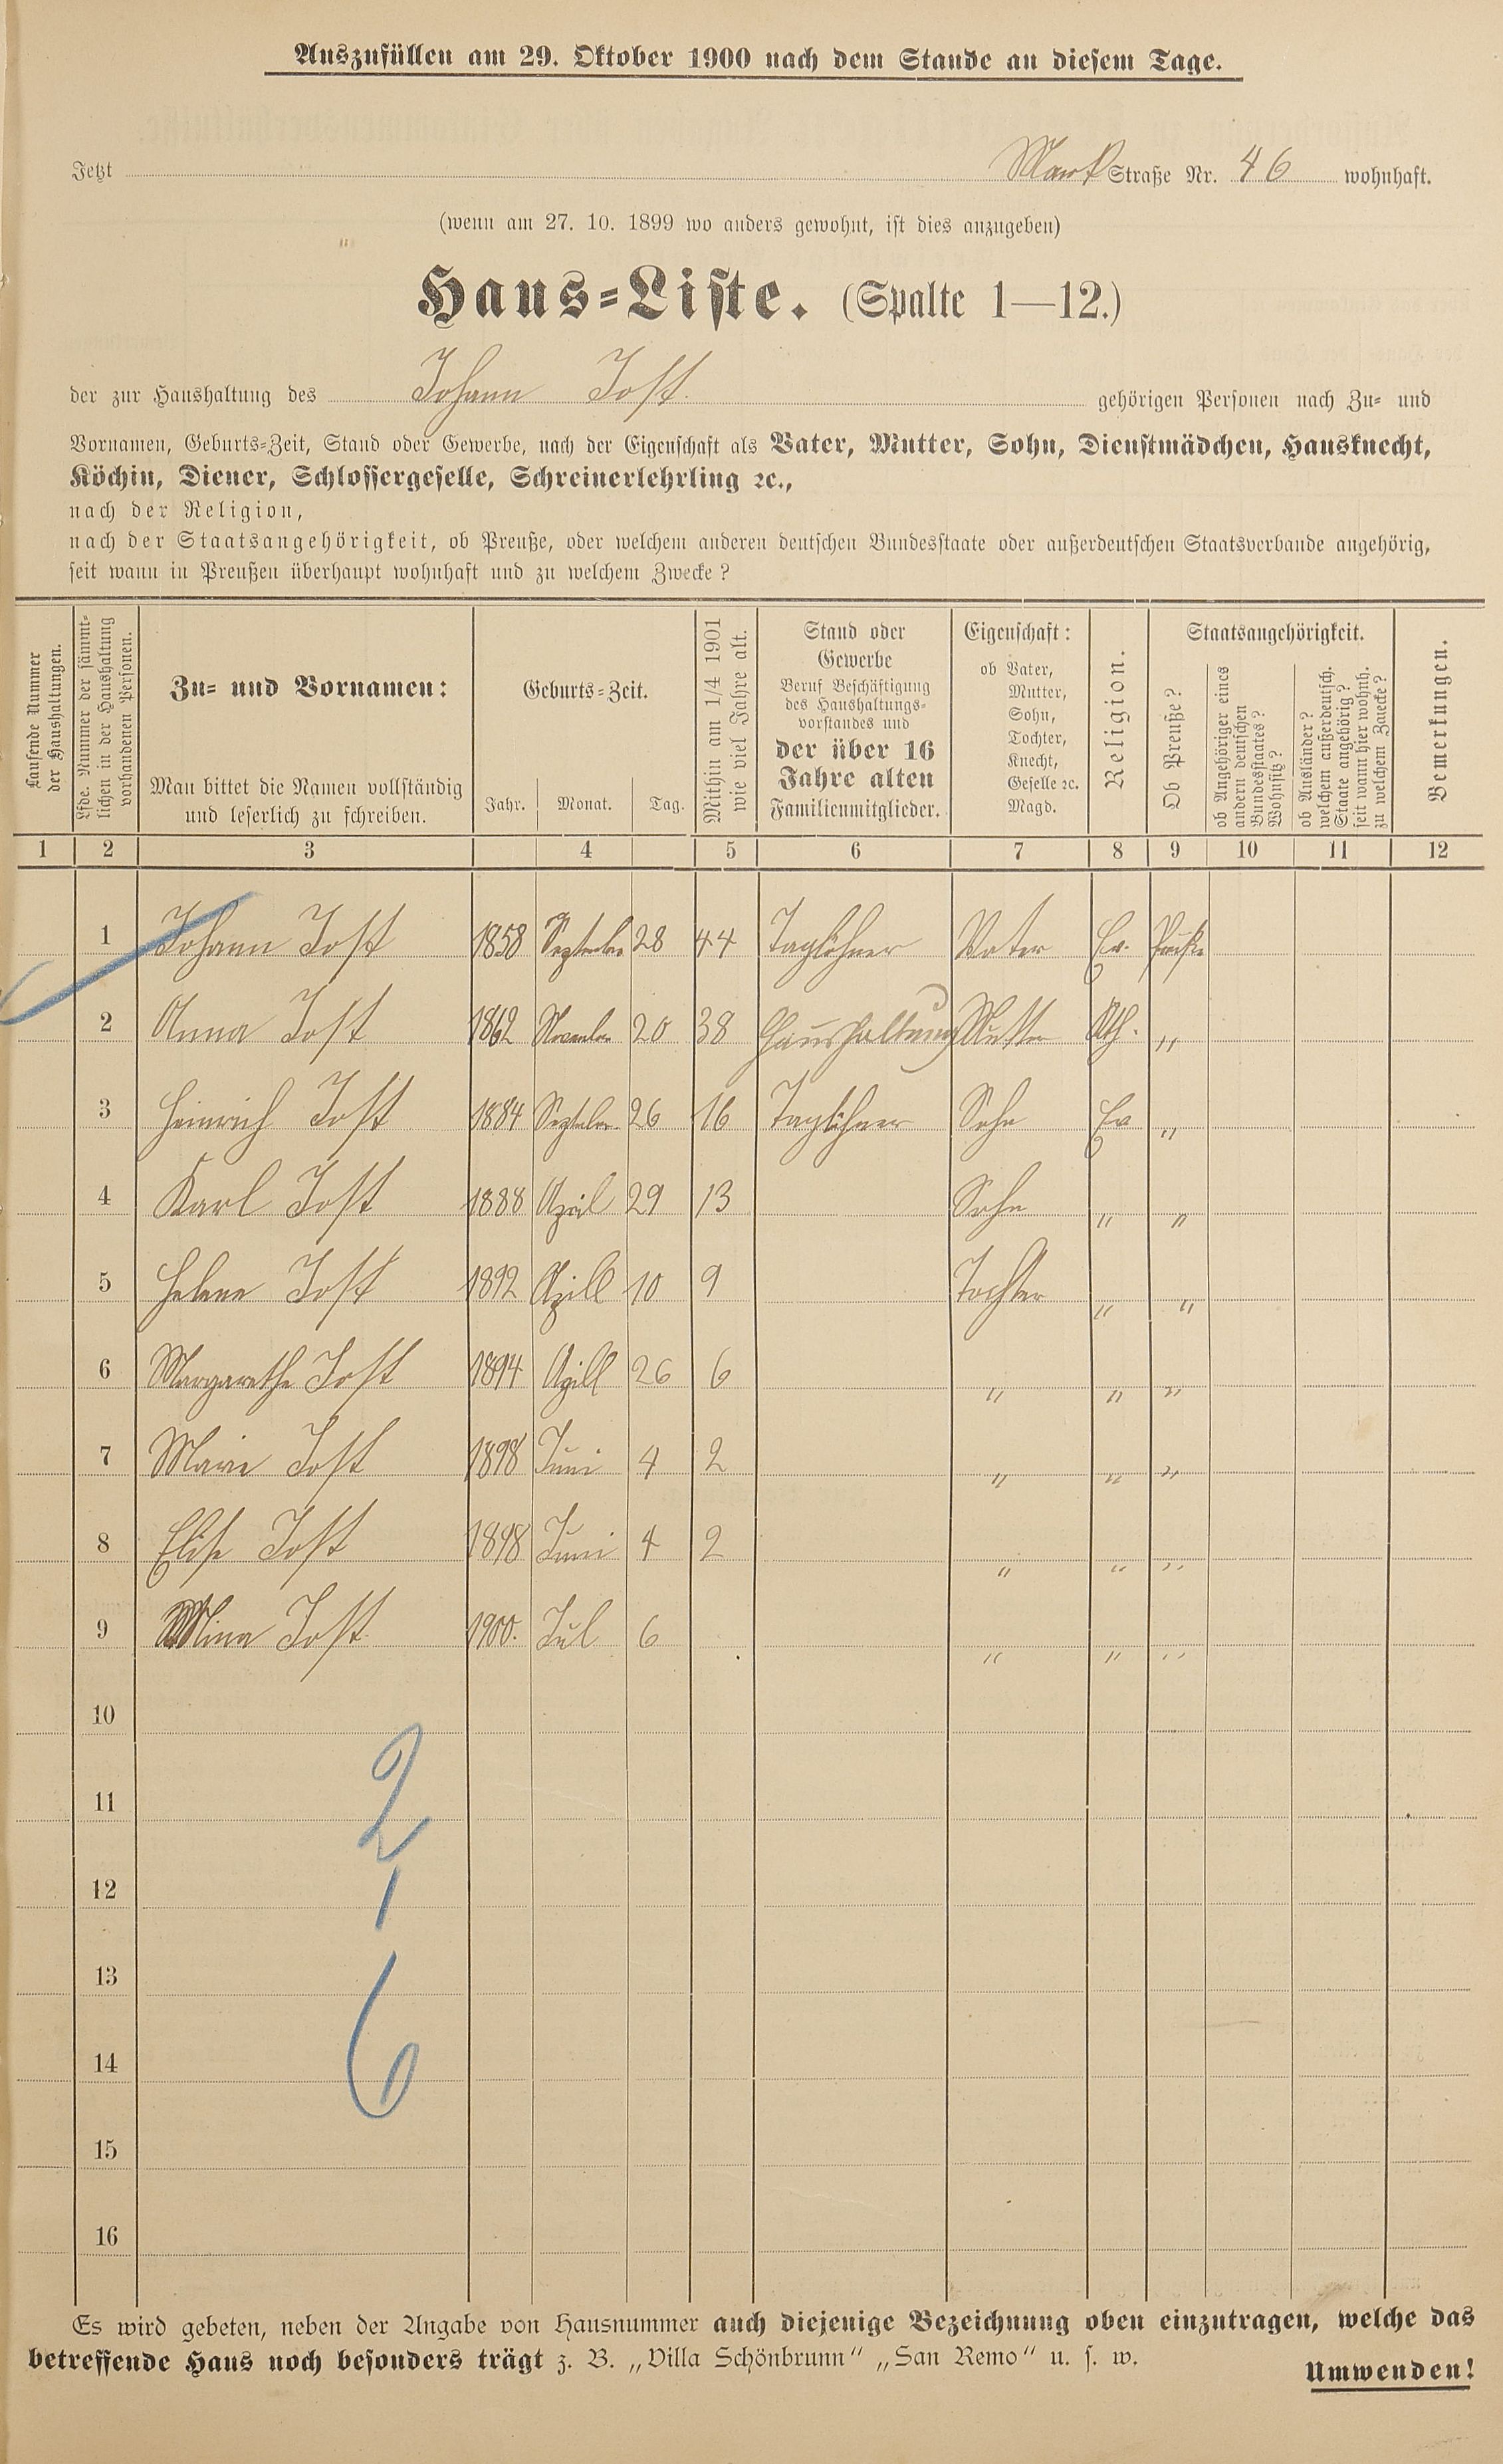 Auszufüllen am 29. Oktober 1900 nach dem Stande an diesem Tage.
Jetzt Mark Straße Nr. 46 wohnhaft.
(wenn am 27. 10. 1899 wo anders gewohnt, ist dies anzugeben)
Haus-Liste. (Spalte 1—12.)
der zur Haushaltung des Johann Jost. gehörigen Personen nach Zu- und
Vornamen, Geburts-Zeit, Stand oder Gewerbe, nach der Eigenschaft als Vater, Mutter, Sohn, Dienstmädchen, Hausknecht,
Köchin, Diener, Schlossergeselle, Schreinerlehrling ꝛc.,
nach der Religion,
nach der Staatsangehörigkeit, ob Preuße, oder welchem anderen deutschen Bundesstaate oder außerdeutschen Staatsverbande angehörig,
seit wann in Preußen überhaupt wohnhaft und zu welchem Zwecke?
Laufende Nummer
der Haushaltungen.
Lfde. Nummer der sämmt-
lichen in der Haushaltung
vorhandenen Personen.
Zu- und Vornamen:
Man bittet die Namen vollständig
und leserlich zu schreiben.
Geburts-Zeit.
Jahr. Monat. Tag.
Mithin am 1/4 1901
wie viel Jahre alt.
Stand oder
Gewerbe
Beruf Beschäftigung
des Haushaltungs-
vorstandes und
der über 16
Jahre alten
Familienmitglieder.
Eigenschaft:
ob Vater,
Mutter,
Sohn,
Tochter,
Knecht,
Geselle ꝛc.
Magd.
Religion.
Staatsangehörigkeit.
Ob Preuße?
ob Angehöriger eines
andern deutschen
Bundesstaates?
Wohnsitz?
ob Ausländer?
welchem außerdeutsch.
Staate angehörig?
seit wann hier wohnh.
zu welchem Zwecke?
Bemerkungen.
1 2 3 4 5 6 7 8 9 10 11 12
1 Johann Jost 1858 September 28 44 Taglöhner Vater Ev. Preuße
2 Anna Jost 1862 November 20 38 Haushaltung Mutter Kth. "
3 Heinrich Jost 1884 September 26 16 Taglöhner Sohn Ev "
4 Karl Jost 1888 April 29 13 Sohn " "
5 Helene Jost 1892 Aprill 10 9 Tochter " "
6 Margarethe Jost 1894 Aprill 26 6 " " "
7 Marie Jost 1898 Juni 4 2 " " "
8 Elise Jost 1898 Juni 4 2 " " "
9 Mina Jost 1900. Jul 6 " " "
10
11 2
12 1
13
14 6
15
16
Es wird gebeten, neben der Angabe von Hausnummer auch diejenige Bezeichnung oben einzutragen, welche das
betreffende Haus noch besonders trägt z. B. „Villa Schönbrunn“ „San Remo“ u. s. w.
Umwenden!